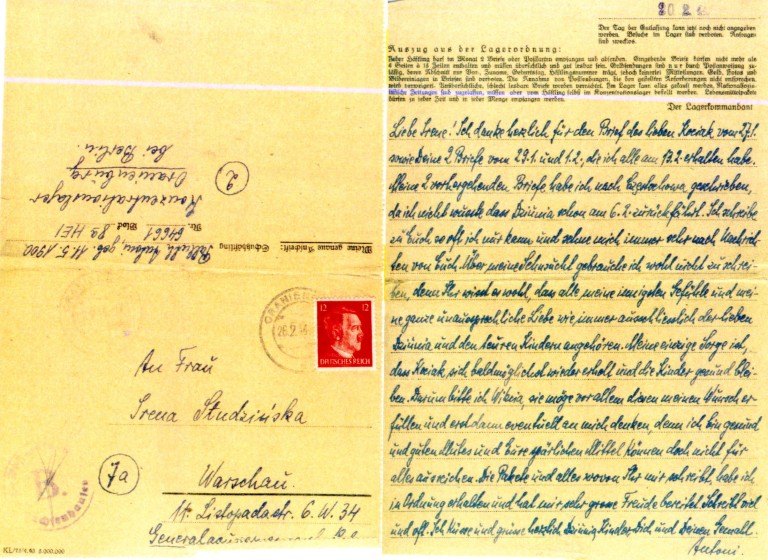 Meine genaue Anschrift:
Schutzhäftling
geb. 11.5.1900
Nr. 64661 Block
Konzentrationslager
Oranienburg
bei Berlin
2
26.2.
12 12
DEUTSCHES REICH
An Frau
Irena Studzińska
7a
Warschau.
11. Listopadastr. 6. W. 34
20.2.
Der Tag der Entlassung kann jetzt noch nicht angegeben
werden. Besuche im Lager sind verboten. Anfragen
sind zwecklos.
Auszug aus der Lagerordnung:
Jeder Häftling darf im Monat 2 Briefe oder Postkarten empfangen und absenden. Eingehende Briefe dürfen nicht mehr als
4 Seiten à 15 Zeilen enthalten und müssen übersichtlich und gut lesbar sein. Geldsendungen sind nur durch Postanweisung zu-
lässig, deren Abschnitt nur Vor-, Zuname, Geburtstag, Häftlingsnummer trägt, jedoch keinerlei Mitteilungen. Geld, Fotos und
Bildereinlagen in Briefen sind verboten. Die Annahme von Postsendungen, die den gestellten Anforderungen nicht entsprechen,
wird verweigert. Unübersichtliche, schlecht lesbare Briefe werden vernichtet. Im Lager kann alles gekauft werden. Nationalsozia-
listische Zeitungen sind zugelassen, müssen aber vom Häftling selbst im Konzentrationslager bestellt werden. Lebensmittelpakete
dürfen zu jeder Zeit und in jeder Menge empfangen werden.
Der Lagerkommandant
Liebe Irene! Ich danke herzlich für den Brief des lieben Kociak vom 27.1.
sowie Deine 2 Briefe vom 29.1. und 1.2., die ich alle am 13.2. erhalten habe.
Meine 2 vorhergehenden Briefe habe ich nach Czestochowa geschrieben,
da ich nicht wusste dass Dziunia schon am 6.2. zurückfährt. Ich schreibe
zu Euch so oft ich nur kann und sehne mich immer sehr nach Nachrich-
ten von Euch. Über meine Sehnsucht gebrauche ich wohl nicht zu schrei-
ben, denn Ihr wisst es wohl, dass alle meine innigsten Gefühle und mei-
ne ganze unaussprechliche Liebe wie immer ausschliesslich der lieben
Dziunia und den teuren Kindern angehören. Meine einzige Sorge ist,
dass Kociak sich baldmöglichst wieder erholt und die Kinder gesund blei-
ben. Darum bitte ich, sie möge vor allem diesen meinen Wunsch er-
füllen und erst dann eventuell an mich denken, denn ich bin gesund
und guten Mutes und Eure spärlichen Mittel können doch nicht für
alles ausreichen. Die Pakete und alles wovon Ihr mir schreibt, habe ich
in Ordnung erhalten und hat mir sehr grosse Freude bereitet. Schreibt viel
und oft. Ich küsse und grüsse herzlich Dziunia, Kinder, Dich und Deinen Gemahl.
Antoni.